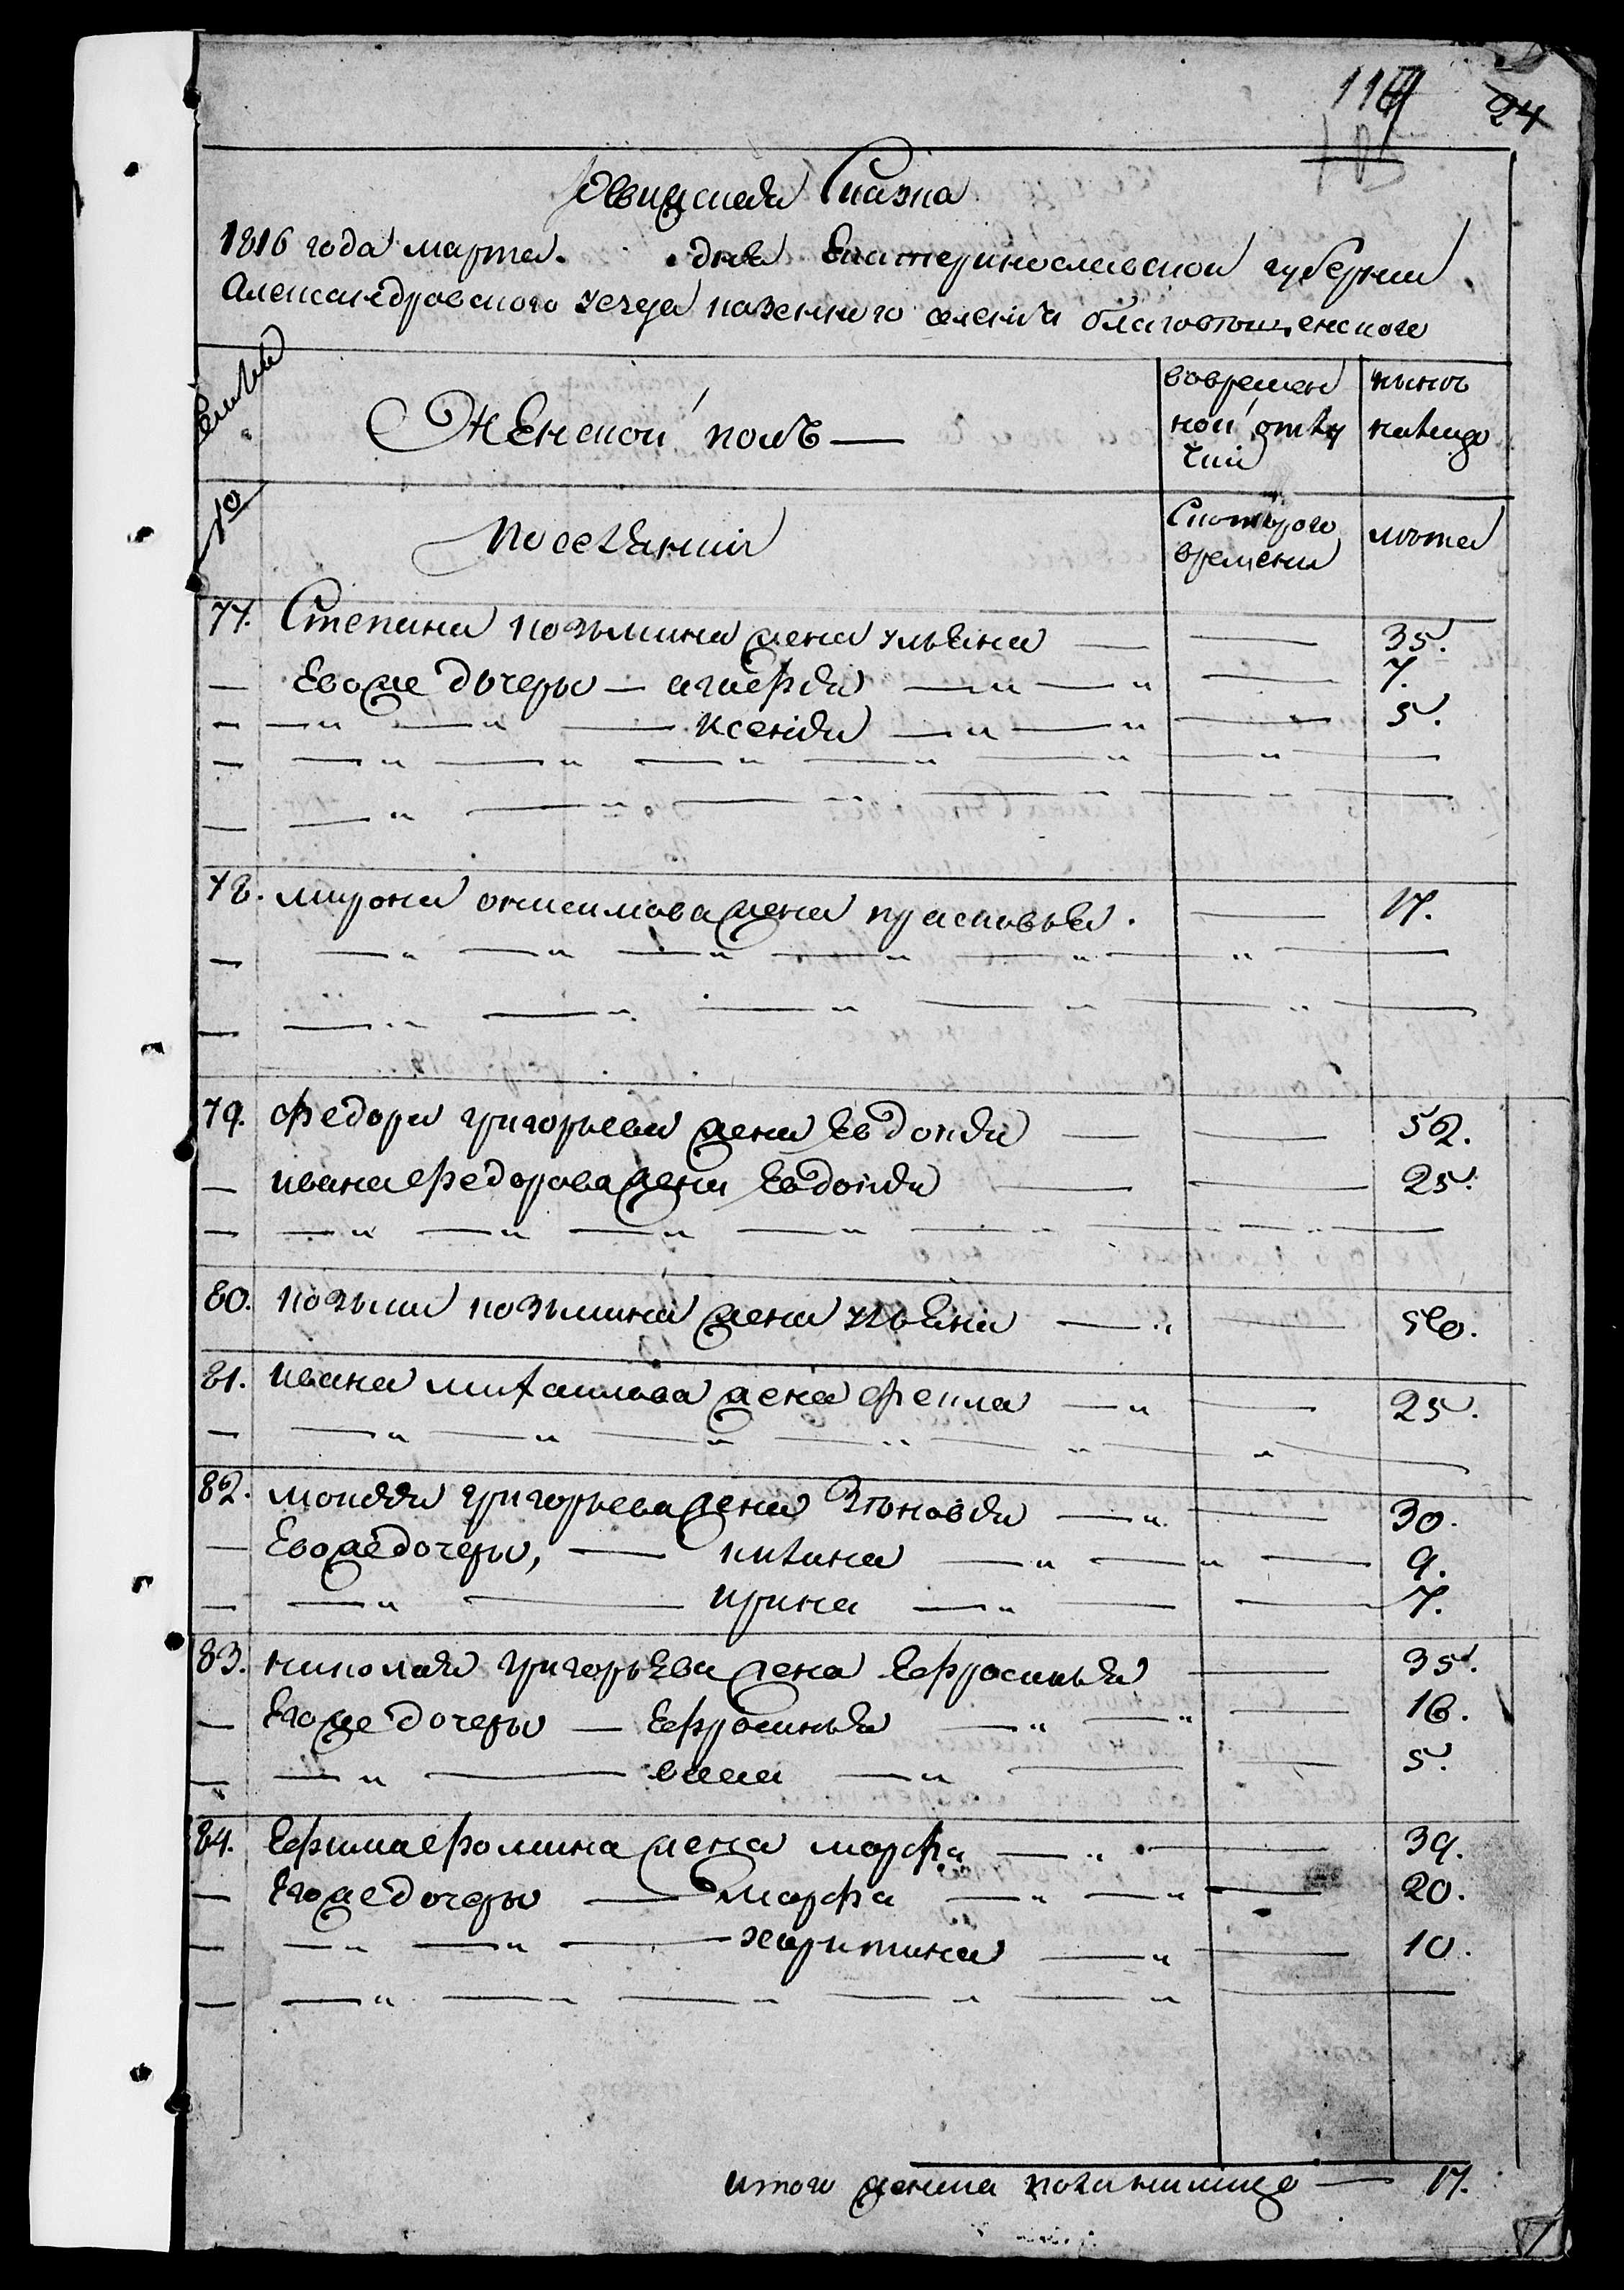 119 24
Ревижская Сказка
1816 года марта. дня Екатеринославской губернии
Александровского уезда казенного селения благовещенского
Семьи
Женской полъ —
вовремен
ной отлу
чки
нынѣ
налицо
№
Поселяния
Скоторого
времени
лѣта
77. Степана козьмина жена ульяна — — 35.
— Евоже дочеры — агафія — " — " — 7.
— — " — " — ксенія — " — " — 5.
78. мирона онисимова жена прасковья. — 17.
79. федора григорьева жена Евдокія — — 52.
— ивана федорова жена Евдокія — — 25.
80. козьми козьмина жена ульяна — " — 56.
81. ивана михаилова жена фекла — " — 25.
82. мокѣя григорьева жена Зѣновія — " — 30.
— Евоже дочеры, — киляна — " — " — 9.
— — " — ирина — " — — 7.
83. николая григорьева жена Ефросинья — 35.
— Егоже дочеры — Ефросинья — " — " — 16.
— — " — васса — " — — 5.
84. Ефима фомина жена марфа — " — 39.
— Егоже дочеры — Марфа — " — " — 20.
— — " — " — харитина — " — 10.
итого женска пола налицо — 17.